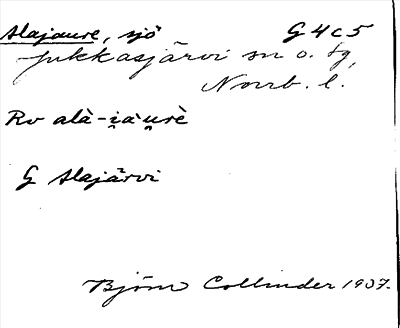 Alajaure, sjö G 4 c 5
Jukkasjärvi sn o. tg,
Norrb. l.
Rv alà-i̯àu̯rè
G Alajärvi
Björn Collinder 1937.